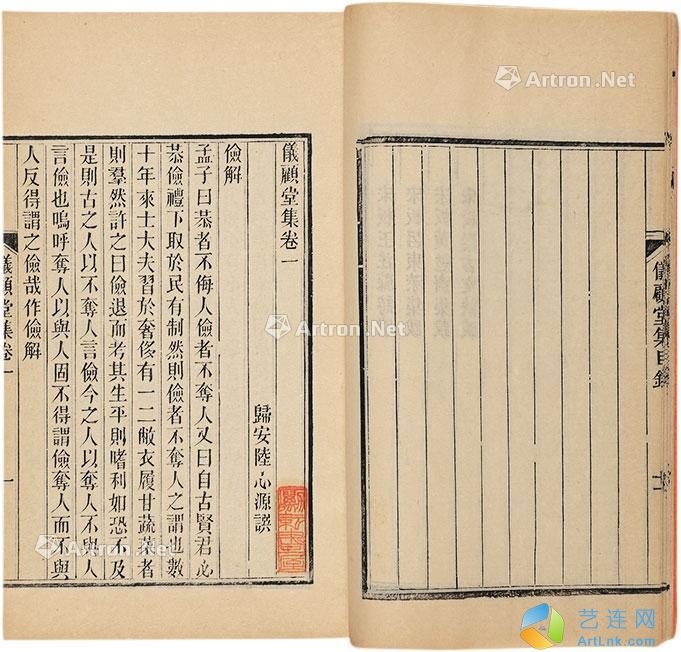 儀顧堂集目錄
儀顧堂集卷一
歸安陸心源譔
儉解
孟子曰恭者不侮人儉者不奪人又曰自古賢君必
恭儉禮下取於民有制然則儉者不奪人之謂也數
十年來士大夫習於奢侈有一二敝衣履甘蔬茶者
則羣然許之曰儉退而考其生平則嗜利如恐不及
是則古之人以不奪人言儉今之人以奪人不與人
言儉也嗚呼奪人以與人固不得謂儉奪人而不與
人反得謂之儉哉作儉解
儀顧堂集卷一
一
Artron.Net
Artron.Net
Artron.Net
Artron.Net
艺连网
ArtLnk.Com